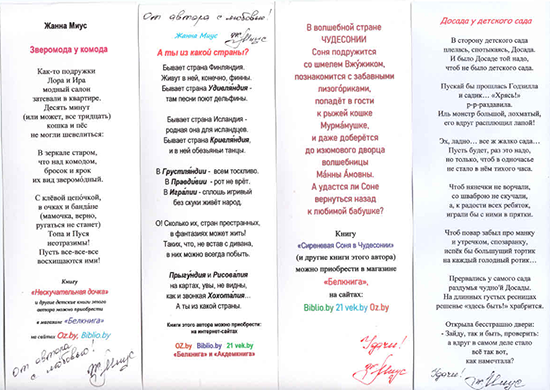 Жанна Миус
Зверомода у комода
Как-то подружки
Лора и Ира
модный салон
затевали в квартире.
Десять минут
(или может, все тридцать)
кошка и пёс
не могли шевелиться:
В зеркале старом,
что над комодом,
бросок и ярок
их вид зверомодный.
С клёвой цепочкой,
в очках и бандане
(мамочка, верно,
ругаться не станет)
Топа и Пуся
неотразимы!
Пусть все-все-все
восхищаются ими!
Книгу
«Нескучательная дочка»
и другие детские книги этого
автора можно приобрести
в магазине «Белкнига»
на сайтах Oz.by, Biblio.by
От автора
с любовью!
Миус
От автора с любовью!
Жанна Миус
Миус
А ты из какой страны?
Бывает страна Финляндия.
Живут в ней, конечно, финны.
Бывает страна Удивляндия -
там песни поют дельфины.
Бывает страна Исландия -
родная она для исландцев.
Бывает страна Кривляндия,
и в ней обезьяны танцы.
В Грустляндии - всем тоскливо.
В Правдивии - рот не врёт.
В Игралии - сплошь игривый
без скуки живёт народ.
О! Сколько их, стран пространных,
в фантазиях может жить!
Таких, что, не встав с дивана,
в них можно всегда побыть.
Прыгундия и Рисовалия
на картах, увы, не видны,
как и звонкая Хохоталия...
А ты из какой страны?
Книги этого автора можно приобрести:
на интернет-сайтах
OZ.by Biblio.by 21 vek.by
«Белкнига» и «Академкнига»
В волшебной стране
ЧУДЕСОНИИ
Соня подружится
со шмелем Вжужиком,
познакомится с забавными
пизогриками,
попадёт в гости
к рыжей кошке
Мурмамушке,
и даже доберётся
до изюмового дворца
волшебницы
Манны Амовны.
А удастся ли Соне
вернуться назад
к любимой бабушке?
Книгу
«Сиреневая Соня в Чудесонии»
(и другие книги этого автора)
можно приобрести в магазине
«Белкнига»,
на сайтах:
Biblio.by 21 vek.by Oz.by
Удачи!
Миус
Досада у детского сада
В сторону детского сада
плелась, спотыкаясь, Досада.
И было Досаде той надо,
чтоб не было детского сада.
Пускай бы прошлась Годзилла
и садик... «Хрясь!»
р-р-раздавила.
Иль монстр большой, лохматый,
его вдруг расплющил лапой!
Эх, ладно... все ж жалко сада...
Пусть будет, раз это надо,
но только, чтоб в одночасье
не стало в нём тихого часа.
Чтоб нянечки не ворчали,
со шваброю не скучали,
а, к радости всех ребяток,
играли бы с ними в прятки.
Чтоб повар забыл про манку
и утречком, спозаранку,
испёк бы большущий тортик
на каждый голодный ротик...
Прервались у самого сада
раздумья чудно́й Досады.
На длинных густых ресницах
решенье «здесь быть!» храбрится.
Открыла бесстрашно двери:
- Зайду, так и быть, проверить:
а вдруг в самом деле стало
всё так вот,
как намечтала?
Удачи!
Миус